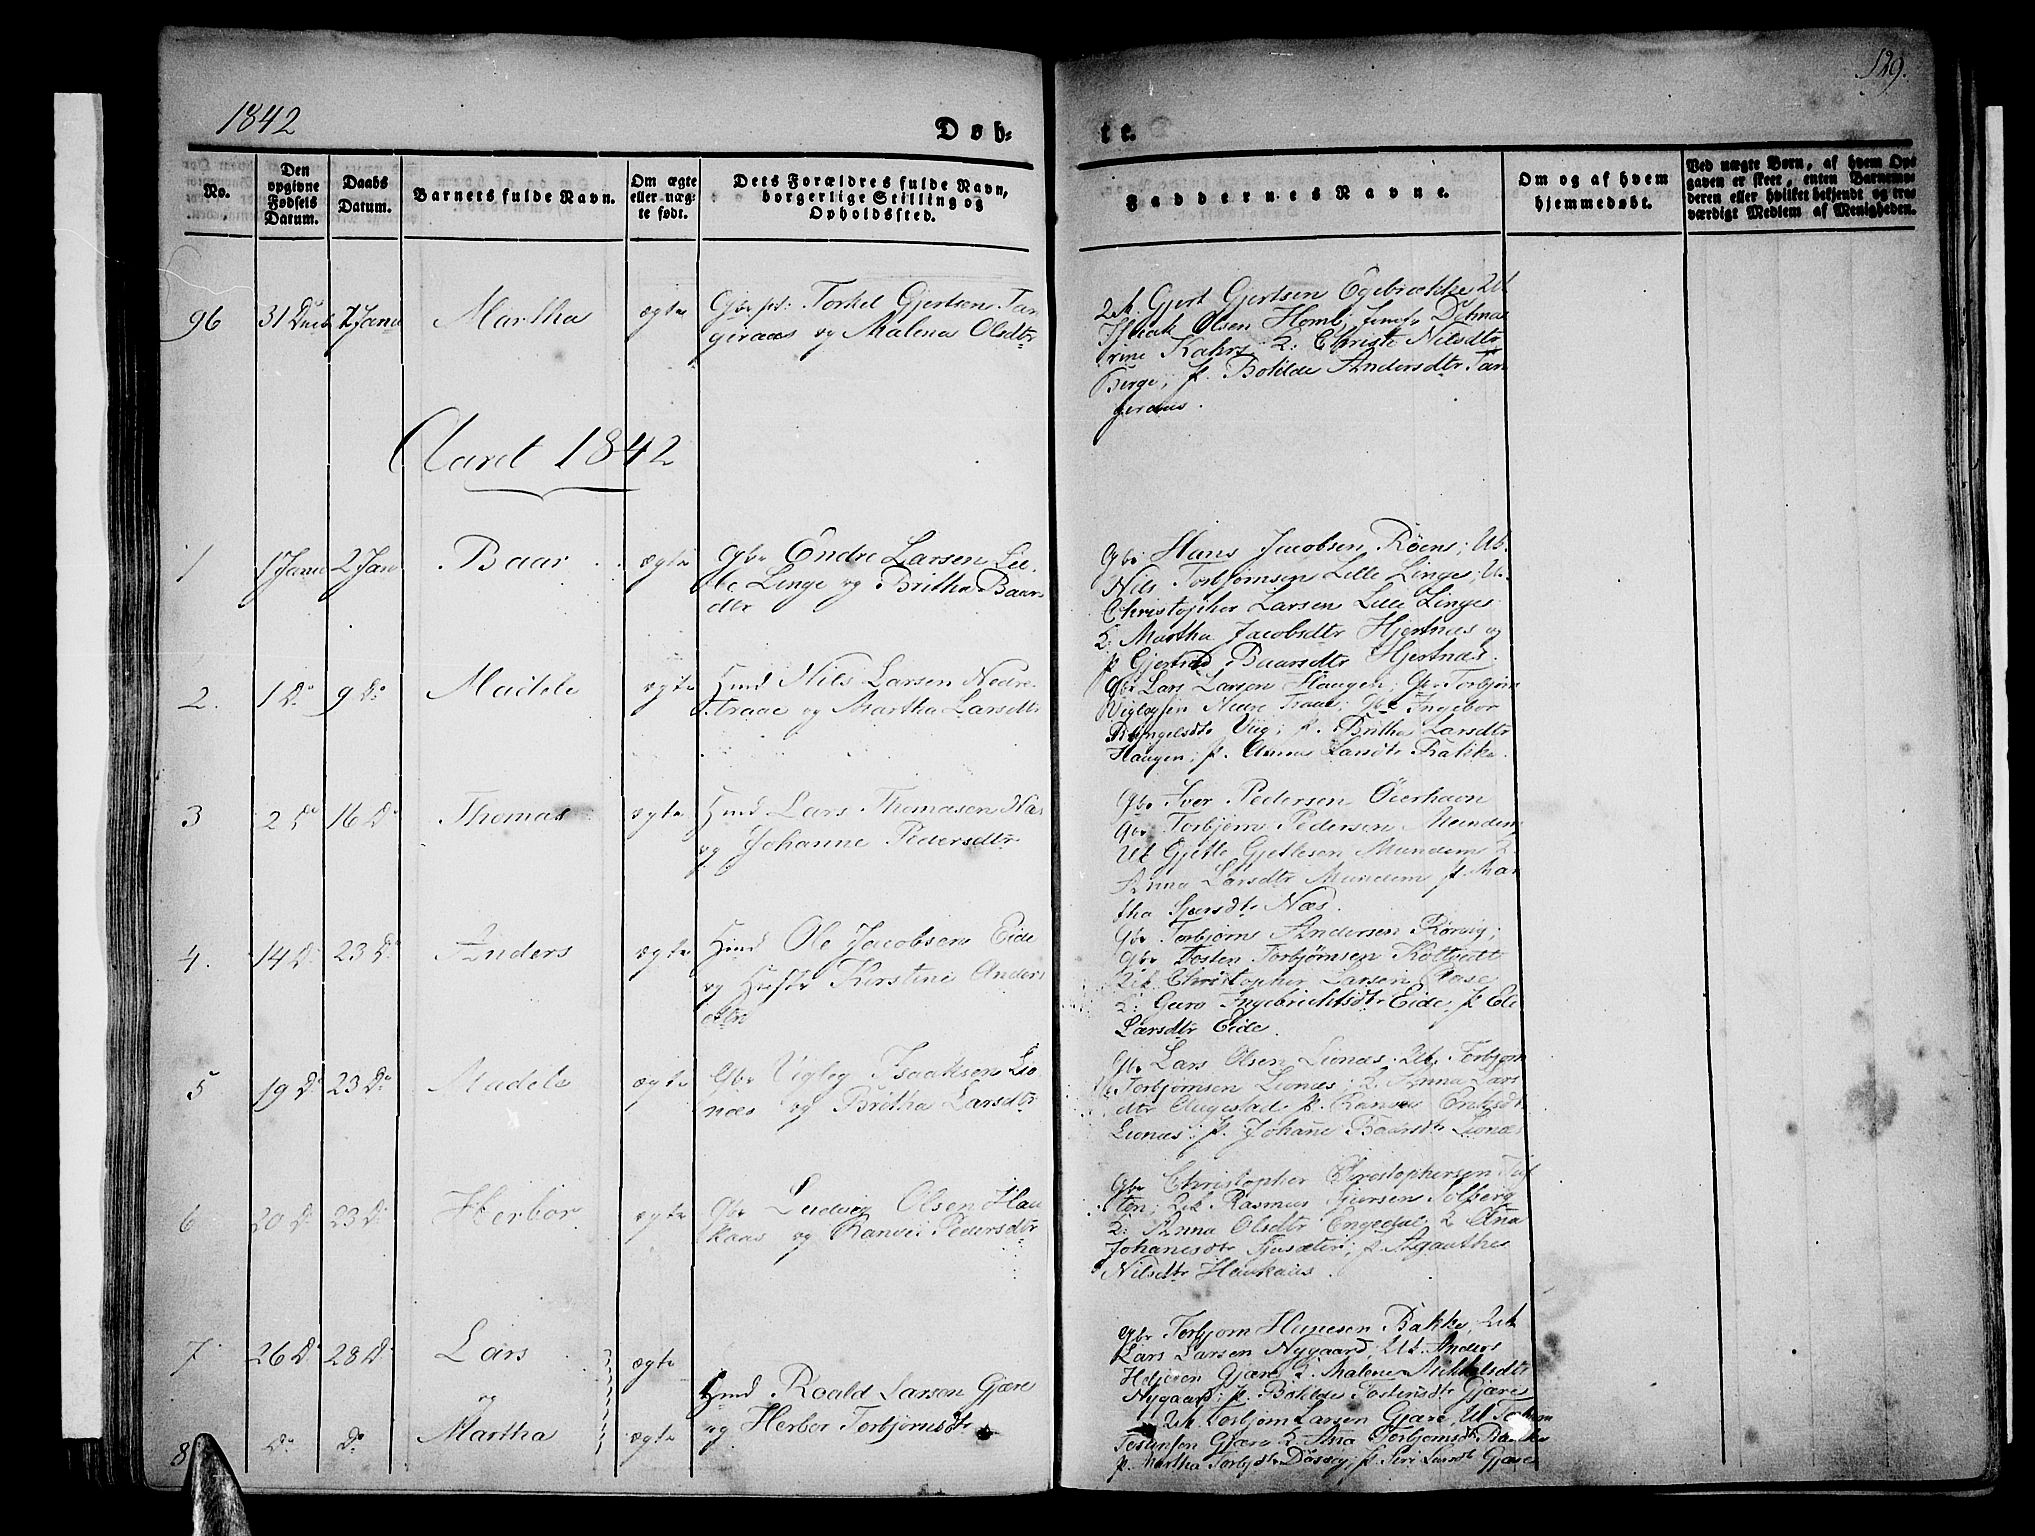 1842
129.
Døb-
te.
No.
Den opgivne Fødsels Datum.
Daabs Datum.
Barnets fulde Navn.
Om ægte eller uægte født.
Dets Forældres fulde Navn, borgerlige Stilling og Opholdsfted.
Faddernes Navne.
Om og af hvem hjemmedøbt.
Ved uægte Børn, af hvem Opgaven er skeet, enten Barnemoderen eller hvilket bekjendt og troværdigt Medlem af Menigheden.
96 31 Decb 2 Janu Martha ægte Gbr Torkel Gjertsen Tan
geraas og Malena Olsdtr
Gjert Gjertsen Øgebrække
Isaak Olsen Homb
rine Kahrs 2: Christi Nilsdtr
Berge, p. Botilde Andersdtr Tan
geraas.
Aaret 1842
1 1 Janu 2 Jan Baar ægte Gbr Endre Larsen Lil
le Linge og Britha Baars
dtr
Gbr Hans Jacobsen Røens; Uk.
Nils Torbjørnsen Lille Linge; U.
Christopher Larsen Lille Linges
2: Martha Jacobsdtr Hjertnæs og
p Gjertrud Baarsdtr Hjertnæs.
2. 1 Do 9 Do Madele ægte Hmd Nils Larsen Nedre
Traae og Martha Larsdtr
Gbr Lars Larsen Haugen; Torbjørn
Vigleysen Nedre Traae; Gbr Ingebor
Viig; p. Britha Larsdtr
Haugen; p. Anna Larsdtr
3 2 Do 16 Do Thomas ægte Hmd Lars Thomasen Næs
og Johanne Pedersdtr
Gbr Iver Pedersen Øierhavn
Gbr Torbjørn Pedersen Mundem
Uk Gjetle Gjetlesen Mundem 2.
Anna Larsdtr Mundem p. Mar
tha Næs.
4. 14 Do 23 Do Anders ægte Hmd Ole Jacobsen Eide
og Hustr Kirstine Anders
dtr
Gbr Torbjørn Andersen Rørvig;
Gbr Tosten Torbjørnsen
Uk Christopher Larsen Aase
2: Guro Ingebrichtsdtr Eide. p Eli
Larsdtr Eide.
5 19 Do 23 Do Madele ægte Gbr Vigleg Isaaksen Lio
næs og Britha Larsdtr
Gbr Lars Olsen Lionæs. Uk. Torbjørn
Torbjørnsen Lionæs; 2. Anna Lars
dtr Augestad p. Eriksdtr
Lionæs; p. Johane Baarsdtr Lionæs
6 20 Do 23 Do Herbor ægte Gbr Ludvig Olsen Hau
kaas og Ranvei Pedersdtr
Gbr Christopher Christophersen Tuf
ten; Uk Rasmus Iversen Solberg
2: Anna Olsdtr Engedal. 2 Ana
Johanesdtr p. Agauthe
Nilsdtr Haukaas.
7 26 Do 28 Do Lars ægte
og
8 Do Do Martha ægte
Hmd Roald Larsen Gjære
og Herbor Torbjørnsdtr
Gbr Torbjørn Hansen Bakke, Uk
Lars Larsen Nygaard; Uk. Anders
Gjære 2. Malene Mikkelsdtr
Nygaard; p. Botilde Tostensdtr Gjære
Uk Torbjørn Larsen Gjære, Uk
Tostensen Gjære 2. Ana Torbjørnsdtr Bakke
p. Martha Torbjdtr p. Siri Larsdtr Gjære